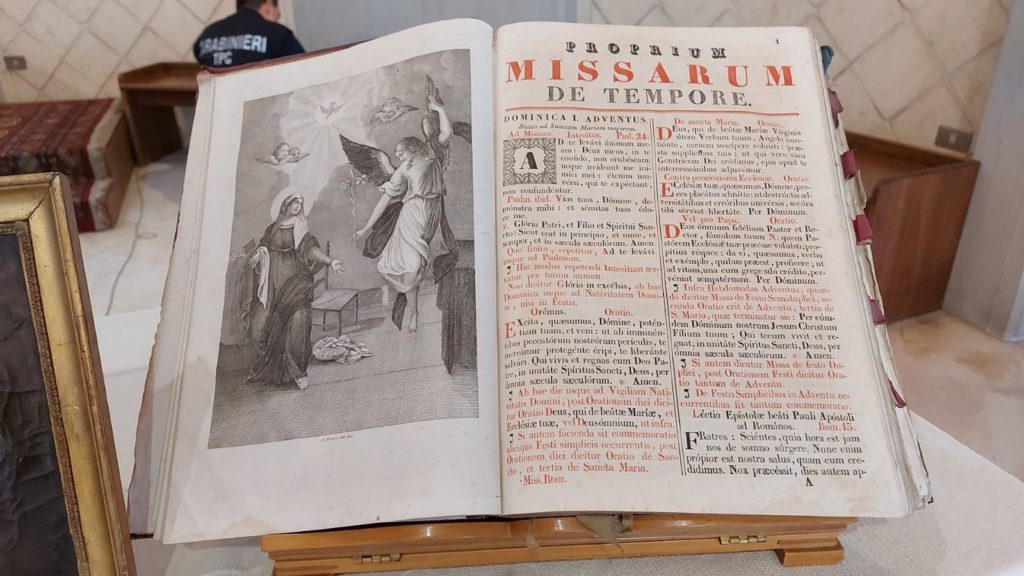 CARABINIERI
TPC
1
PROPRIUM
MISSARUM
DE TEMPORE.
DOMINICA I. ADVENTUS.
Statio ad Sanctam Mariam majorem.
Ad Missam. Introitus. Psal. 24.
AD te levávi ánimam me-
am: Deus meus, in te
confído, non erubéscam:
neque irrídeant me ini-
míci mei: étenim uni-
vérsi, qui te expéctant,
non confundéntur.
Psalm. ibid. Vias tuas, Dómine, de-
mónstra mihi: et sémitas tuas édo-
ce me.
Glória Patri, et Fílio et Spirítui San-
cto: Sicut erat in princípio, et nunc, et
semper, et in sǽcula sæculórum. Amen.
Quo finito, repetitur, Ad te levávi.
usque ad Psalmum.
Hic modus repetendi Introitum ser-
vatur per totum annum.
Non dicitur Glória in excélsis, ab hac
Dominica usque ad Nativitatem Domi-
ni, nisi in Festis.
Orémus. Oratio.
Excita, quǽsumus, Dómine, potén-
tiam tuam, et veni: ut ab imminén-
tibus peccatórum nostrórum perículis, te
mereámur protegénte éripi, te liberánte
salvári. Qui vivis et regnas cum Deo Pa-
tre, in unitáte Spíritus Sancti, Deus, per
ómnia sǽcula sæculórum. Amen.
Ab hac die usque ad Vigiliam Nati-
vitatis Domini, post Orationem diei dici-
tur Oratio Deus, qui de beátæ Maríæ, et
Ecclésiæ tuæ, vel Deus ómnium, ut infra.
Si autem facienda sit commemoratio
alicujus Festi simplicis occurrentis, post
Orationem diei dicitur Oratio de San-
cto, et tertia de Sancta Maria.
Miss. Rom.
De sancta Maria. Oratio.
Deus, qui de beátæ Maríæ Vírginis
útero Verbum tuum, Angelo nun-
tiánte, carnem suscípere voluísti: præ-
sta supplícibus tuis; ut qui vere eam
Genitrícem Dei crédimus, ejus apud te
intercessiónibus adjuvémur.
Contra persecutores Ecclesiæ. Oratio.
Ecclésiæ tuæ, quǽsumus, Dómine, pre-
ces placátus admítte: ut destrúctis ad-
versitátibus et erróribus univérsis, secú-
ra tibi sérviat libertáte. Per Dóminum.
Vel pro Papa. Oratio.
Deus ómnium fidélium Pastor et Re-
ctor, fámulum tuum N. quem Pa-
stórem Ecclésiæ tuæ præésse voluísti, pro-
pítius réspice: da ei, quǽsumus, verbo
et exémplo, quibus præest, profícere; ut
ad vitam, una cum grege sibi crédito, per-
véniat sempitérnam. Per Dóminum.
Infra Hebdomadas Adventus, quan-
do dicitur Missa de Festo Semiduplici, se-
cunda Oratio erit de Adventu, tertia de
S. Maria, quæ terminatur sic: Per eúm-
dem Dóminum nostrum Jesum Christum
Fílium tuum; Qui tecum vivit et re-
gnat, in unitáte Spíritus Sancti, Deus, per
ómnia sǽcula sæculórum. Amen.
Si autem dicitur Missa de festo Du-
plici, post Orationem Festi dicitur Ora-
tio tantum de Adventu.
De Festis Simplicibus in Adventu oc-
currentibus fit tantum commemoratio.
Léctio Epístolæ beáti Pauli Apóstoli
ad Romános. Rom. 13.
Fratres: Sciéntes, quia hora est jam
nos de somno súrgere. Nunc enim
própior est nostra salus, quam cum cre-
dídimus. Nox præcéssit, dies autem ap-
A